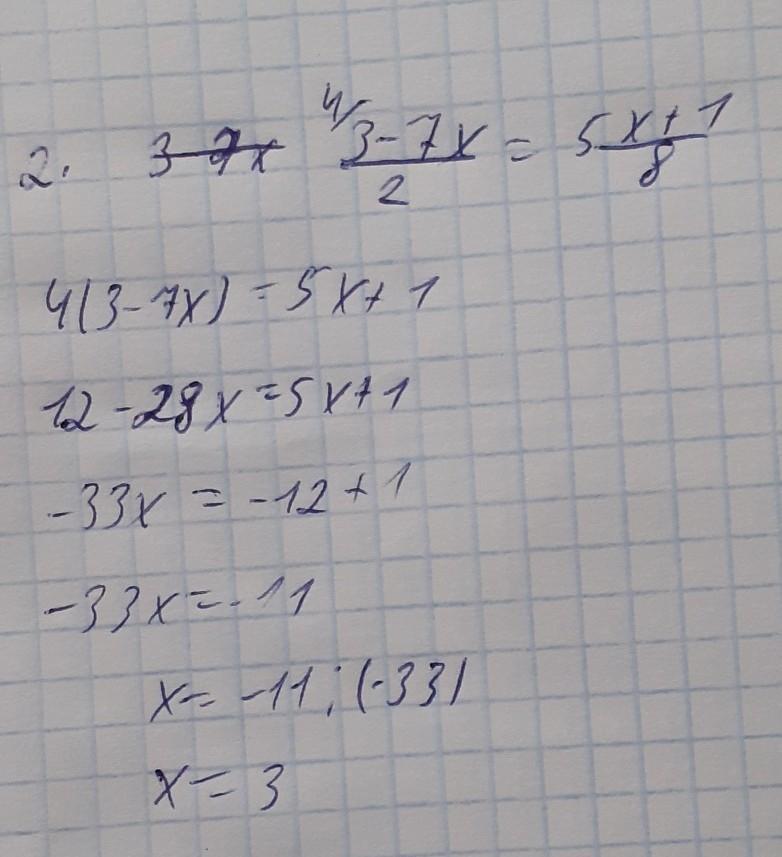 2. 3-7x 4/ (3-7x)/2 = (5x+1)/8
4(3-7x) = 5x+1
12-28x=5x+1
-33x = -12+1
-33x=-11
x= -11:(-33)
x= 3